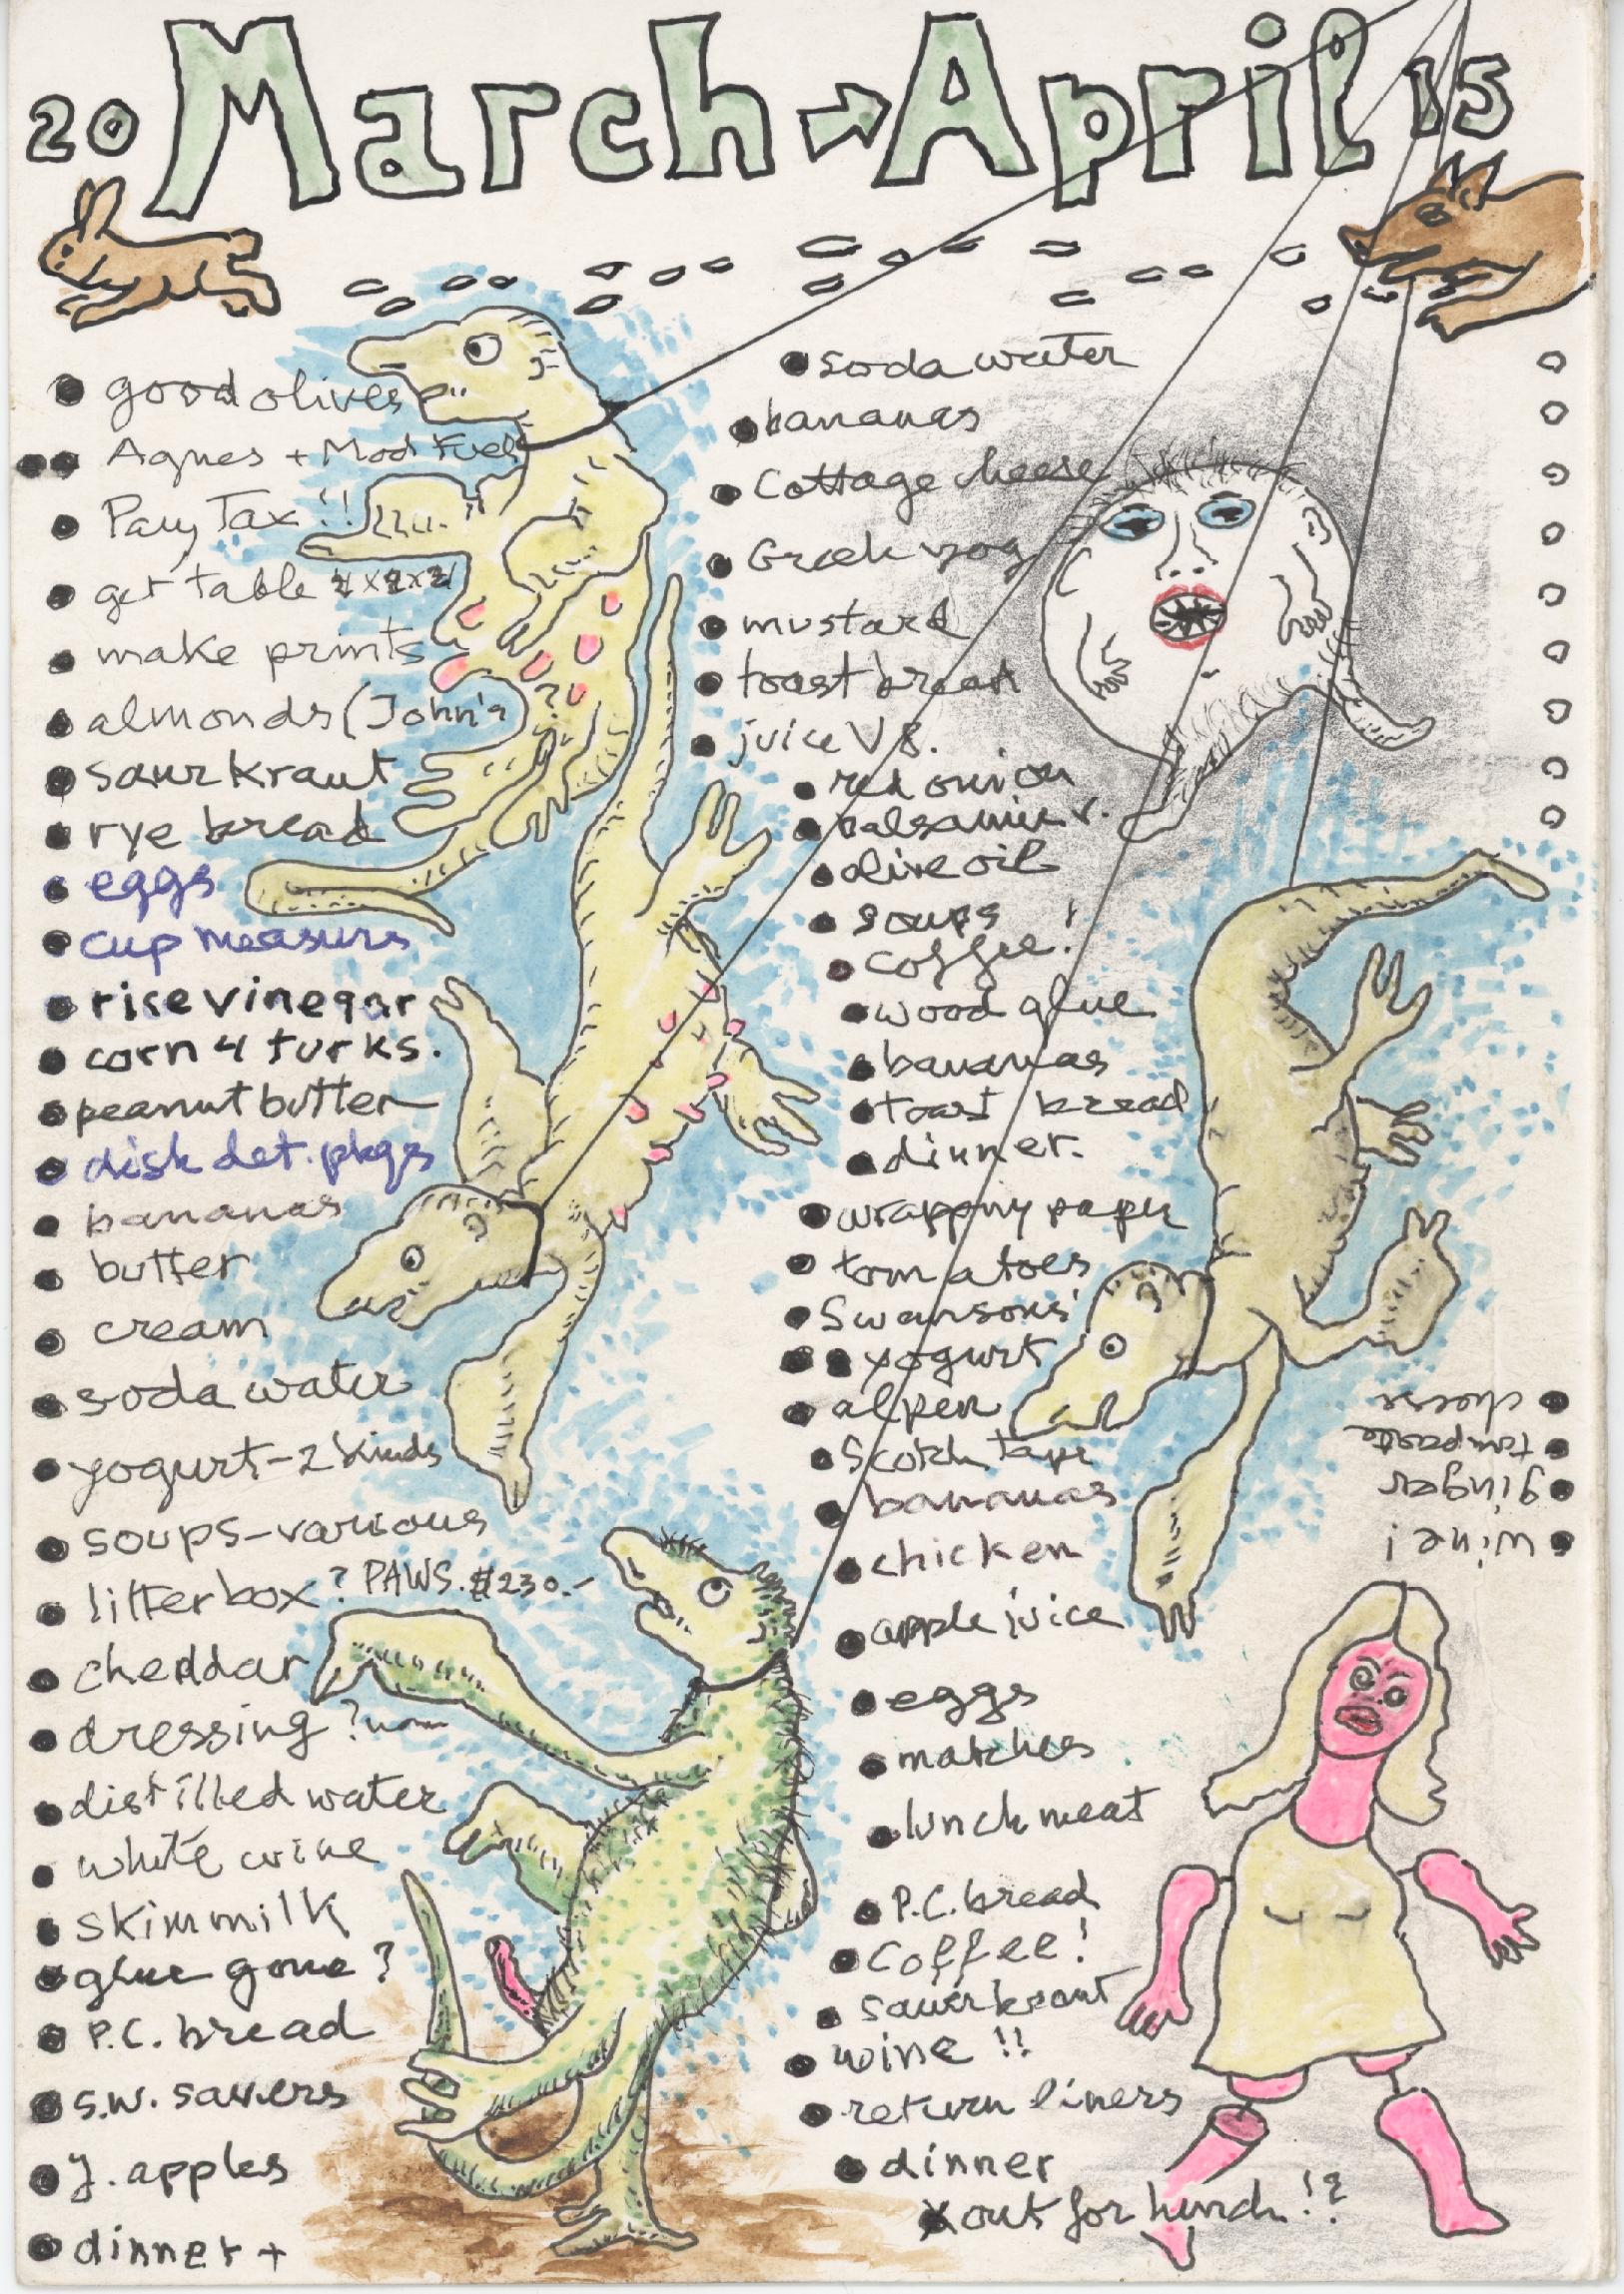 20 March → April 15
good olives
Agnes + Mod Fuel
Pay Tax !!
get table
make prints
almonds (John's) ?
saurkraut
rye bread
eggs
cup measurs
rise vinegar
corn 4 turks.
peanut butter
disk det. pkgs
bananas
butter
cream
soda water
yogurt - 2 kinds
soups - various
litterbox ? PAWS. $230.-
cheddar
dressing ?
distilled water
white wine
skim milk
glue gone ?
P.C. bread
s.w. savers
J. apples
dinner +
soda water
bananas
Cottage cheese
Greek yog
mustard
toast bread
juice V8.
red onion
balsamic v.
olive oil
soups
coffee !
wood glue
bananas
toast bread
dinner.
wrapping paper
tomatoes
Swansons'
yogurt
alpen
Scotch tape
bananas
chicken
apple juice
eggs
matches
lunch meat
P.C. bread
Coffee !
sauerkraut
wine !!
return liners
dinner
x out for lunch !?
wine !
ginger